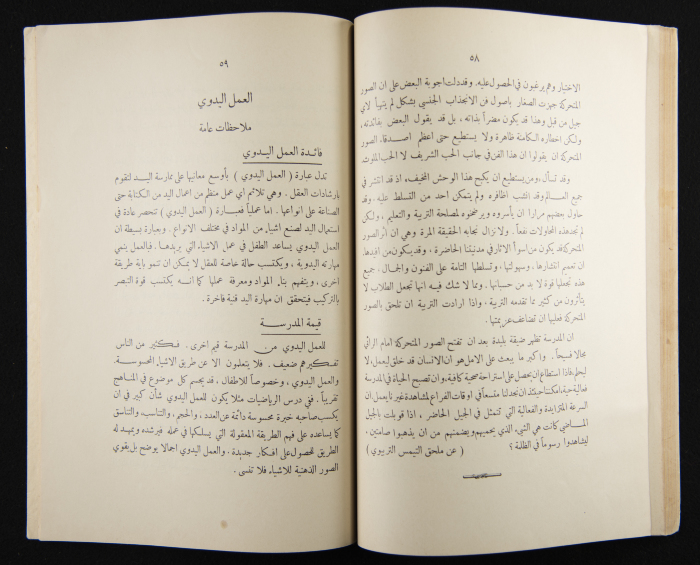 ٥٨
الاختيار وهم يرغبون في الحصول عليه. وقد دلت اجوبة البعض على ان الصور
المتحركة جهزت الصغار باصول فن الانجذاب الجنسي بشكل لم يتهيأ لاي
جيل من قبل وهذا قد يكون مضراً بذاته، بل قد يقول البعض بفائدته،
ولكن اخطاره الكامنة ظاهرة ولا يستطيع حتى اعظم اصدقاء الصور
المتحركة ان يقولوا ان هذا الفن في جانب الحب الشريف لا الحب الملوث.
وقد تسأل، ومن يستطيع ان يكبح هذا الوحش المخيف، اذ قد انتشر في
جميع العالم وقد انشب اظافره ولم يتمكن احد من التسلط عليه. وقد
حاول بعضهم مراراً ان يأسروه ويرغموه لمصلحة التربية والتعليم، ولكن
لم تجد هذه المحاولات نفعاً. ولا نزال نجابه الحقيقة المرة وهي ان اثر الصور
المتحركة قد يكون من اسوأ الآثار في مدنيتنا الحاضرة، وقد يكون من افيدها.
ان تعميم انتشارها، وسهولتها، وتسلطها التامة على الفنون والجمال، جميع
هذه تجعلها قوة لا بد من حسبانها. ومما لا شك فيه انها تجعل الطلاب لا
يتأثرون من كثير مما تقدمه التربية، واذا ارادت التربية ان تلحق بالصور
المتحركة فعليها ان تضاعف عزيمتها.
ان المدرسة تظهر ضيقة بليدة بعد ان تفتح الصور المتحركة امام الرائي
مجالا فسيحاً. واكبر ما يبعث على الامل هو ان الانسان قد خلق ليعمل، لا
ليحلم، فاذا استطاع ان يحصل على استراحة صحية كافية، وان تصبح الحياة في المدرسة
فعالية حية، امكننا حينئذ ان نجد لنا متسعاً في اوقات الفراغ لمشاهدة غيرنا يعمل. ان
السرعة المتزايدة والفعالية التي تتمثل في الجيل الحاضر، اذا قوبلت بالجيل
الماضي كانت هي الشيء الذي يحميهم ويضمنهم من ان يذهبوا صامتين،
ليشاهدوا رسوماً في الظلة؟ (عن ملحق التيمس التربوي)
٥٩
العمل اليدوي
ملاحظات عامة
فائدة العمل اليدوي
تدل عبارة (العمل اليدوي) بأوسع معانيها على ممارسة اليد لتقوم
بارشادات العقل. وهي تلائم اي عمل منظم من اعمال اليد من الكتابة حتى
الصناعة على انواعها. اما عملياً فعبارة (العمل اليدوي) تنحصر عادة في
استعمال اليد لصنع اشياء من المواد في مختلف الانواع. وبعبارة بسيطة ان
العمل اليدوي يساعد الطفل في عمل الاشياء التي يريدها. فبالعمل ينمي
مهارته اليدوية، ويكتسب حالة خاصة للعقل لا يمكن ان تنمو باية طريقة
اخرى، ويتفهم بناء المواد ومعرفة عمليا كما انه يكتسب قوة التبصر
بالتركيب فيتحقق ان مهارة اليد قنية فاخرة.
قيمة المدرسة
للعمل اليدوي من المدرسة قيم اخرى. فكثير من الناس
تفكيرهم ضعيف. فلا يتعلمون الا عن طريق الاشياء المحسوسة.
والعمل اليدوي، وخصوصاً للاطفال، قد يجسم كل موضوع في المناهج
تقريباً. ففي درس الرياضيات مثلا يكون للعمل اليدوي شأن كبير في ان
يكسب صاحبه خبرة محسوسة دائمة عن العدد، والحجم، والتناسب، والتناسق
كما يساعده على فهم الطريقة المعقولة التي يسلكها في عمله فيرشده ويمهد له
الطريق للحصول على افكار جديدة، والعمل اليدوي اجمالا يوضح بل يقوي
الصور الذهنية للاشياء فلا تنسى.